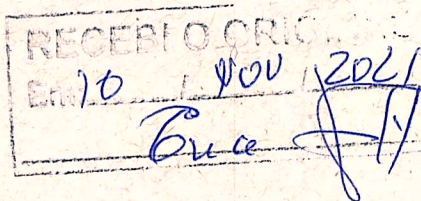 RECEBI O ORIG
Em 10 / NOV / 2021